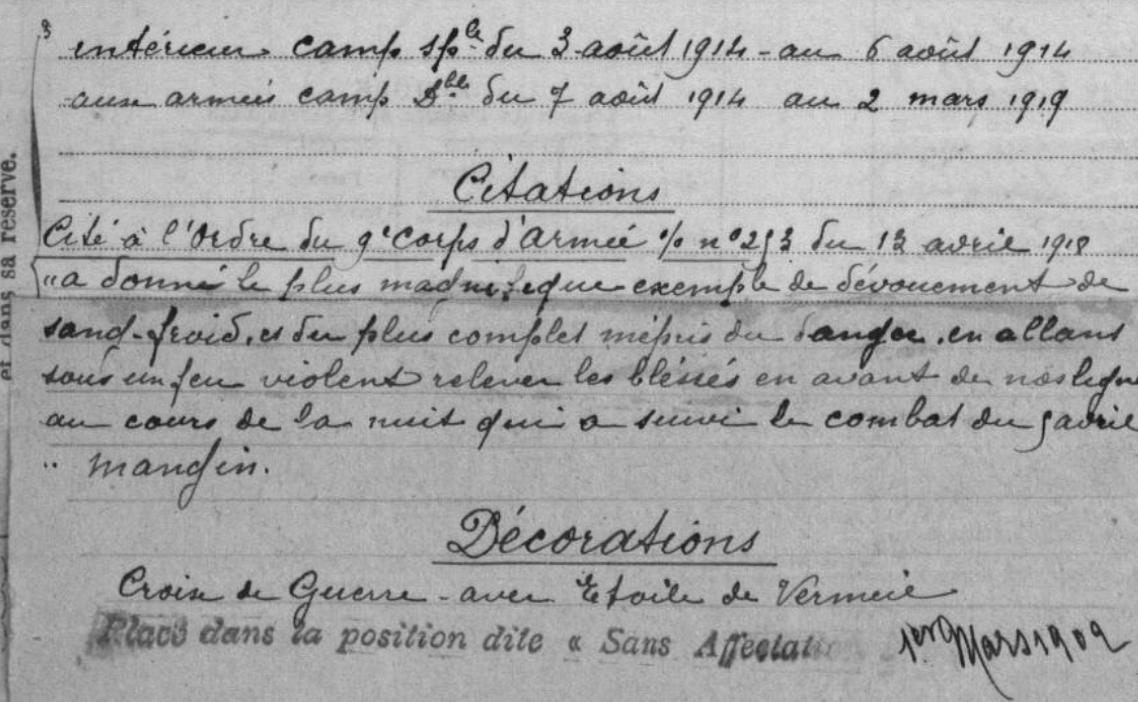 intérieur camp sple du 3 août 1914 - au 6 août 1914
aux armées camp dble du 7 août 1914 au 2 mars 1919
et dans sa réserve.
Citations
Cité à l'Ordre du 9e Corps d'Armée % n° 253 du 13 avril 1918
"a donné le plus magnifique exemple de dévouement de
sang-froid, et du plus complet mépris du danger, en allant
sous un feu violent relever les bléssés en avant de nos ligne
au cours de la nuit qui a suivi le combat du 5 avril
" mangin.
Décorations
Croix de Guerre - avec Etoile de Vermeil
Placé dans la position dite « Sans Affectati
1er Mars 1902